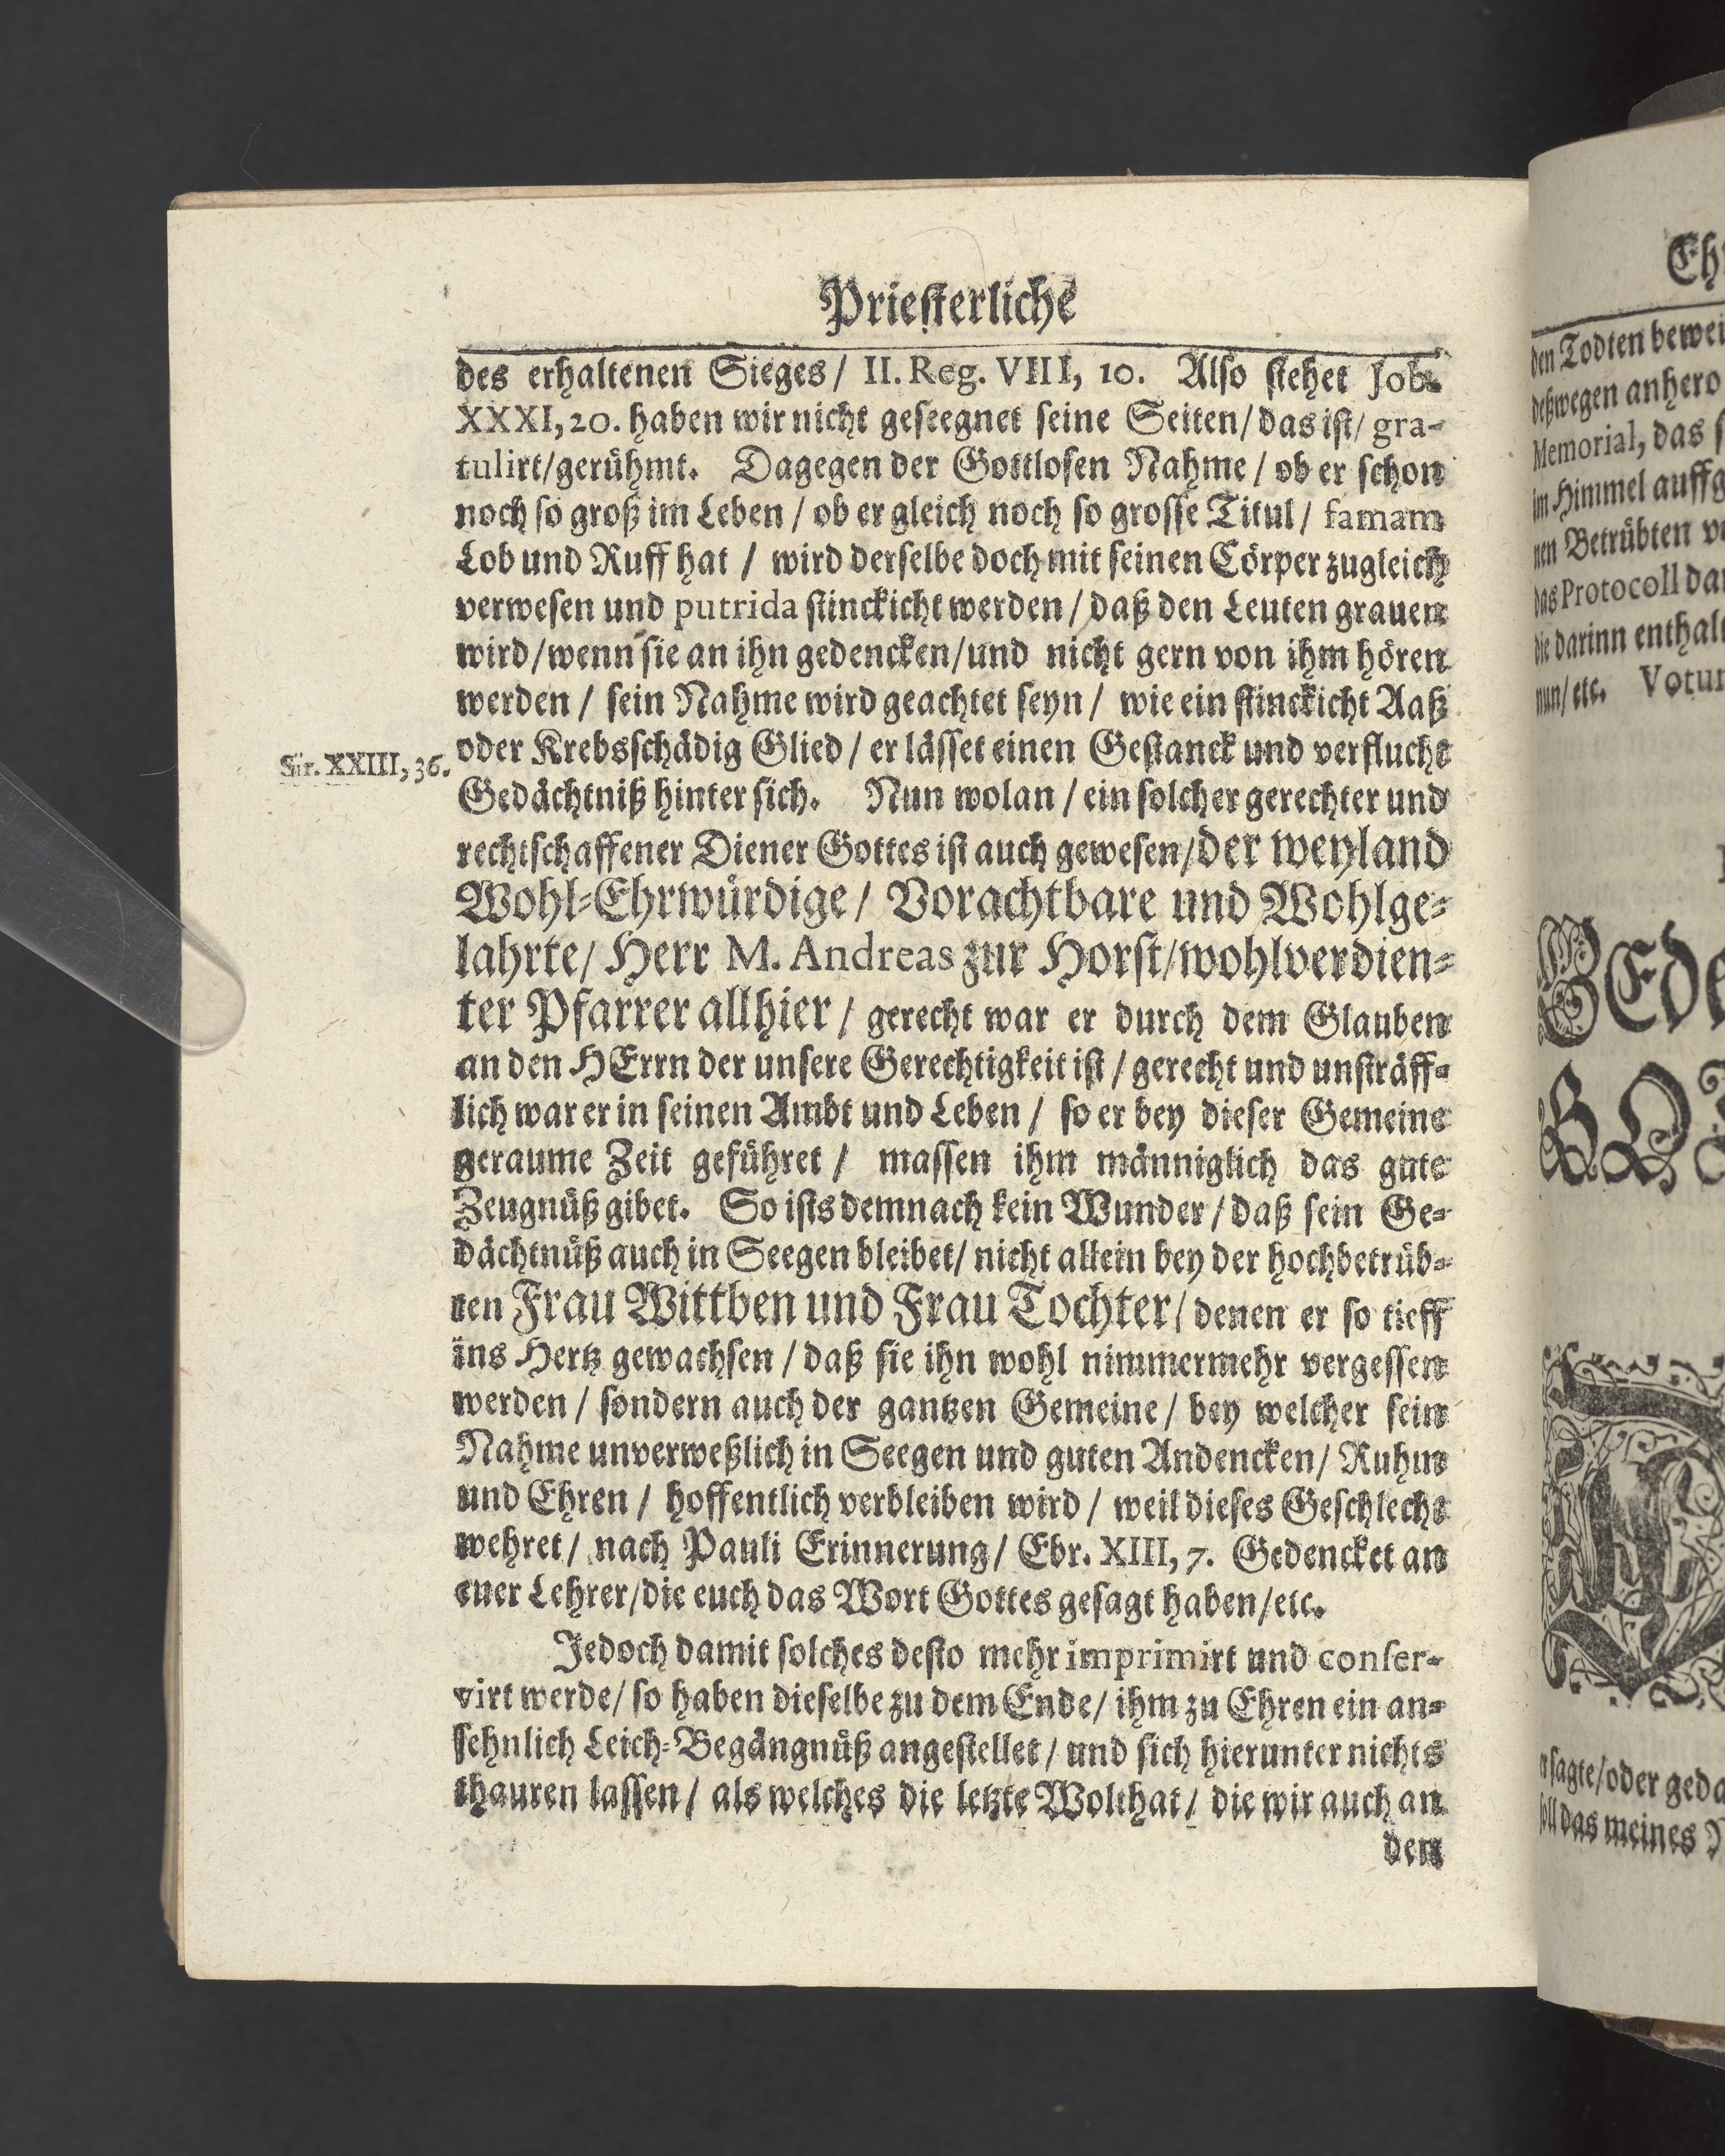 Priesterliche
des erhaltenen Sieges/ II. Reg. VIII, 10. Also stehet Job.
XXXI, 20. haben wir nicht geseegnet seine Seiten/ das ist/ gra-
tulirt/ gerühmt. Dagegen der Gottlosen Nahme/ ob er schon
noch so groß im Leben/ ob er gleich noch so grosse Titul/ famam
Lob und Ruff hat/ wird derselbe doch mit seinen Cörper zugleich
verwesen und putrida stinckicht werden/ daß den Leuten grauen
wird/ wenn sie an ihn gedencken/ und nicht gern von ihm hören
werden/ sein Nahme wird geachtet seyn/ wie ein stinckicht Aaß
Sir. XXIII, 36.
oder Krebsschädig Glied/ er lässet einen Gestanck und verflucht
Gedächtniß hinter sich. Nun wolan/ ein solcher gerechter und
rechtschaffener Diener Gottes ist auch gewesen/ der weyland
Wohl-Ehrwürdige/ Vorachtbare und Wohlge-
lahrte/ Herr M. Andreas zur Horst/ wohlverdien-
ter Pfarrer allhier/ gerecht war er durch dem Glauben
an den HErrn der unsere Gerechtigkeit ist/ gerecht und unsträff-
lich war er in seinen Ambt und Leben/ so er bey dieser Gemeine
geraume Zeit geführet/ massen ihm männiglich das gute
Zeugnüß gibet. So ists demnach kein Wunder/ daß sein Ge-
dächtnüß auch in Seegen bleibet/ nicht allein bey der hochbetrüb-
ten Frau Wittben und Frau Tochter/ denen er so tieff
ins Hertz gewachsen/ daß sie ihn wohl nimmermehr vergessen
werden/ sondern auch der gantzen Gemeine/ bey welcher sein
Nahme unverweßlich in Seegen und guten Andencken/ Ruhm
und Ehren/ hoffentlich verbleiben wird/ weil dieses Geschlecht
wehret/ nach Pauli Erinnerung/ Ebr. XIII, 7. Gedencket an
euer Lehrer/ die euch das Wort Gottes gesagt haben/ etc.
Jedoch damit solches desto mehr imprimirt und conser-
virt werde/ so haben dieselbe zu dem Ende/ ihm zu Ehren ein an-
sehnlich Leich-Begängnüß angestellet/ und sich hierunter nichts
thauren lassen/ als welches die letzte Wolthat/ die wir auch an
den
Eh
den Todten bewei
deßwegen anhero
Memorial, das s
im Himmel auffg
nen Betrübten v
das Protocoll dar
die darinn enthalt
nun/ etc. Votu
GEde
sagte/ oder geda
soll das meines